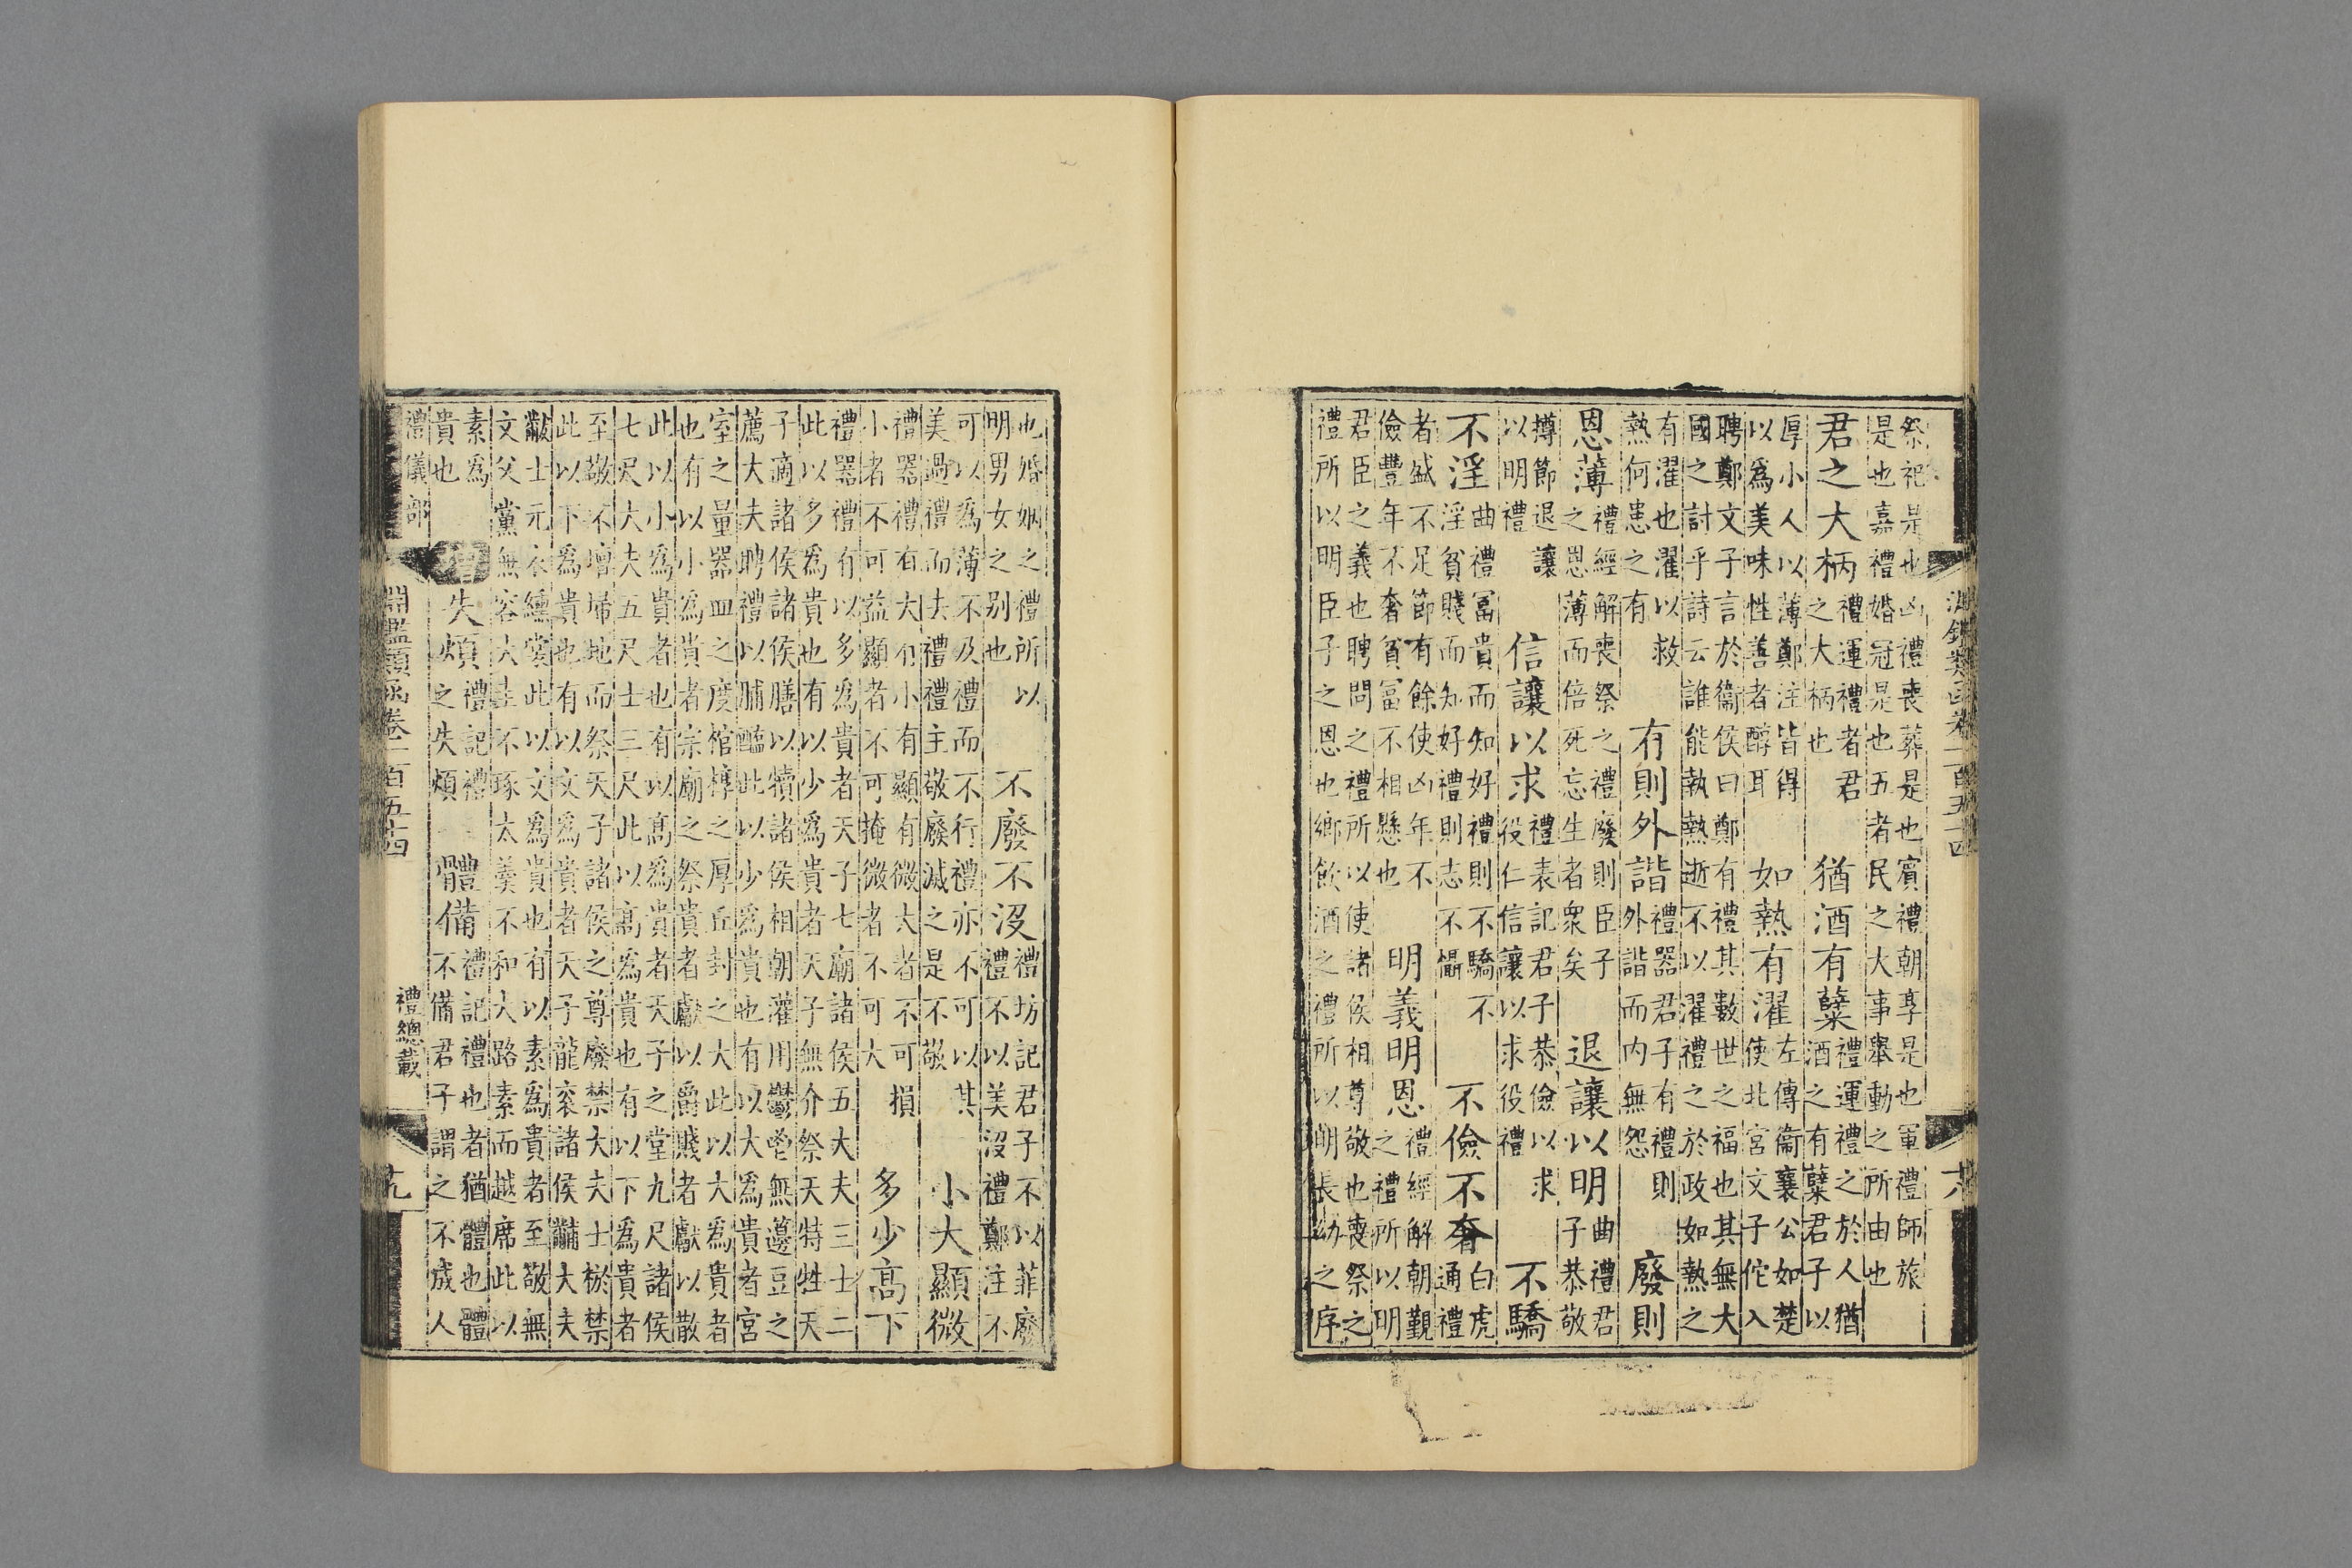 淵鑑類函卷二百五十四 十八
祭祀是也凶禮喪葬是也賓禮朝享是也軍禮師旅
是也嘉禮婚冠是也五者民之大事舉動之所由也
君之大柄 禮運禮者君之大柄也 猶酒有糵 禮運禮之於人猶酒之有糵君子以
厚小人以薄鄭注皆得以為美味性善者醇耳 如熱有濯 左傳衞襄公如楚使北宮文子佗入
聘鄭文子言於衞侯曰鄭有禮其數世之福也其無大
國之討乎詩云誰能執熱逝不以濯禮之於政如熱之
有濯也濯以救熱何患之有 有則外諧 禮器君子有禮則外諧而内無怨 廢則
恩薄 禮經解喪祭之禮廢則臣子之恩薄而倍死忘生者衆矣 退讓以明 曲禮君子恭敬
撙節退讓以明禮 信讓以求 禮表記君子恭儉以求役仁信讓以求役禮 不驕
不淫 曲禮冨貴而知好禮則不驕不淫貧賤而知好禮則志不懾 不儉不奢 白虎通禮
者盛不足節有餘使凶年不儉豐年不奢貧冨不相懸也 明義明恩 禮經解朝覲之禮所以明
君臣之義也聘問之禮所以使諸侯相尊敬也喪祭之
禮所以明臣子之恩也鄉飲酒之禮所以明長幼之序
也婚姻之禮所以明男女之别也 不廢不沒 禮坊記君子不以菲廢禮不以美沒禮鄭注不
可以為薄不及禮而不行禮亦不可以其美過禮而去禮禮主敬廢滅之是不敬 小大顯微
禮器禮有大有小有顯有微大者不可損小者不可益顯者不可掩微者不可大 多少高下
禮器禮有以多為貴者天子七廟諸侯五大夫三士二
此以多為貴也有以少為貴者天子無介祭天特牲天
子適諸侯諸侯膳以犢諸侯相朝灌用鬱鬯無籩豆之
薦大夫聘禮以脯醢此以少為貴也有以大為貴者宮
室之量器皿之度棺椁之厚丘封之大此以大為貴者
也有以小為貴者宗廟之祭貴者獻以爵賤者獻以散
此以小為貴者也有以高為貴者天子之堂九尺諸侯
七尺大夫五尺士三尺此以高為貴也有以下為貴者
至敬不壇埽地而祭天子諸侯之尊廢禁大夫士棜禁
此以下為貴也有以文為貴者天子龍衮諸侯黼大夫
黻士元衣纁裳此以文為貴也有以素為貴者至敬無
文父黨無容大圭不琢太羹不和大路素而越席此以
素為貴也 增 失煩 禮記禮之失煩 體備 禮記禮也者猶體也體不備君子謂之不成人
禮儀部 淵鑑類函卷二百五十四 禮總載 十九